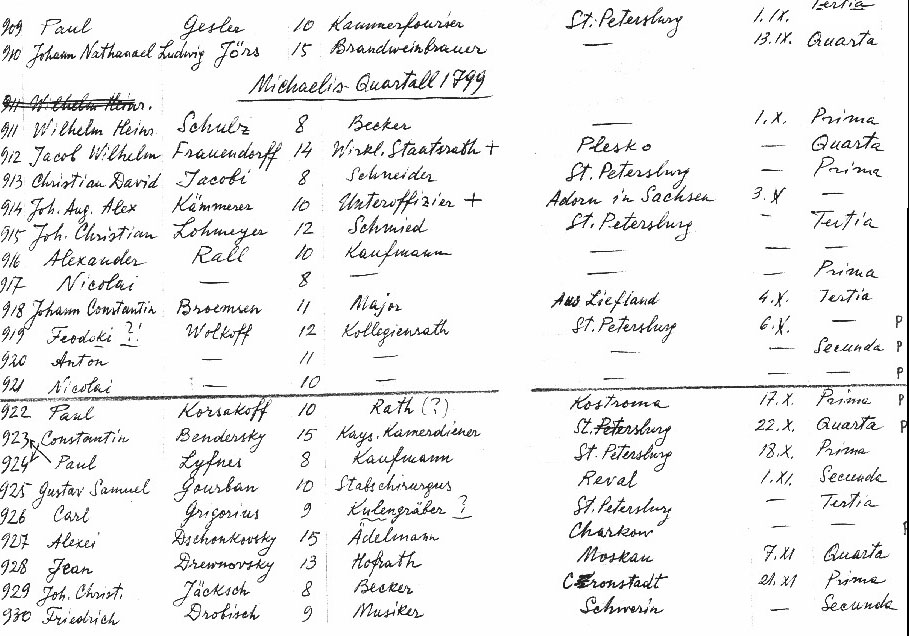 Tertia
909 Paul Gesler 10 Kammerfourier St. Petersburg 1. IX. 
910 Johann Nathanael Ludwig Jörs 15 Brandweinbrauer — 13. IX. Quarta
Michaelis-Quartall 1799
911 Wilhelm Heinr.
911 Wilhelm Heinr. Schulz 8 Becker — 1. X. Prima
912 Jacob Wilhelm Frauendorff 14 Wirkl. Staatsrath + Plesko — Quarta
913 Christian David Jacobi 8 Schneider St. Petersburg — Prima
914 Joh. Aug. Alex Kämmerer 10 Unteroffizier + Adorn in Sachsen 3. X —
915 Joh. Christian Lohmeyer 12 Schmied St. Petersburg — Tertia
916 Alexander Rall 10 Kaufmann — — —
917 Nicolai — 8 — — — Prima
918 Johann Constantin Broemsen 11 Major Aus Liefland 4. X. Tertia
919 Feodski ?! Wolkoff 12 Kollegienrath St. Petersburg 6. X. — P
920 Anton — 11 — — — Secunda P
921 Nicolai — 10 — — — — P
922 Paul Korsakoff 10 Rath (?) Kostroma 17. X. Prima P
923 Constantin Bendersky 15 Kays. Kamerdiener St. Petersburg 22. X. Quarta P
924 Paul Lyfnes 8 Kaufmann St. Petersburg 18. X. Prima
925 Gustav Samuel Gourban 10 Stabschirurgus Reval 1. XI. Secunda
926 Carl Grigorius 9 Kulengräber ? St. Petersburg — Tertia
927 Alexei Dschonkovsky 15 Adelmann Charkow — —
928 Jean Drewnovsky 13 Hofrath Moskau 7. XI Quarta
929 Joh. Christ. Jäcksch 8 Becker Cronstadt 21. XI Prima
930 Friedrich Drobisch 9 Musiker Schwerin — Secunda